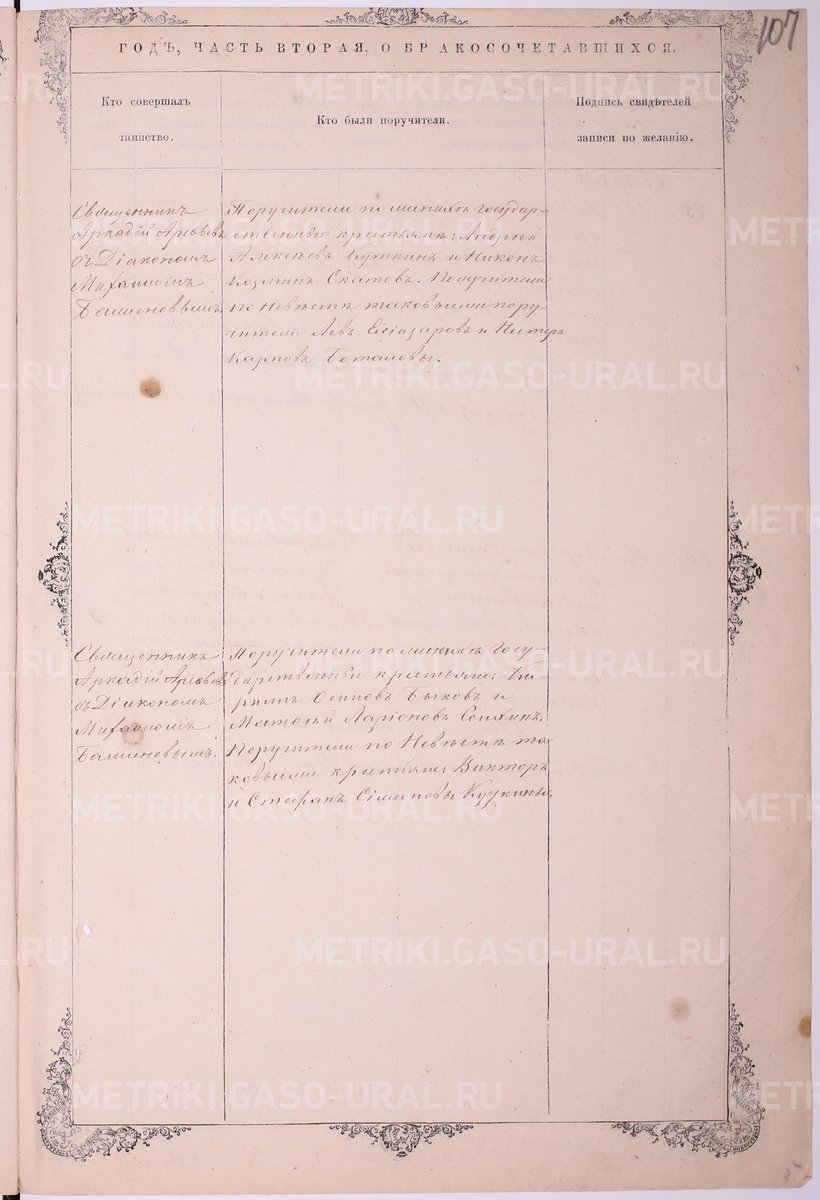 107
ГОДЪ, ЧАСТЬ ВТОРАЯ, О БРАКОСОЧЕТАВШИХСЯ.
Кто совершалъ
таинство.
Кто были поручители.
Подпись свидѣтелей
записи по желанію.
Священникъ
Аркадій
съ Діакономъ
Михаиломъ
Поручители по женихѣ Государ-
ственные крестьяне: Андрей
Алексѣевъ и Никонъ
Козминъ Скатовъ. Поручители
по Невѣстѣ таковыеже пору-
чители Левъ Еліазаровъ и Нестеръ
Карповъ Боталовы.
Священникъ
Аркадій
съ Діакономъ
Михаиломъ
Поручители по женихѣ Госу-
дарственные крестьяне: Ки-
рилъ Осиповъ Быковъ и
Матвѣй Ларіоновъ
Поручители по Невѣстѣ та-
ковыеже крестьяне: Викторъ
и Стефанъ Сімоновы Кучкины.
METRIKI.GASO-URAL.RU